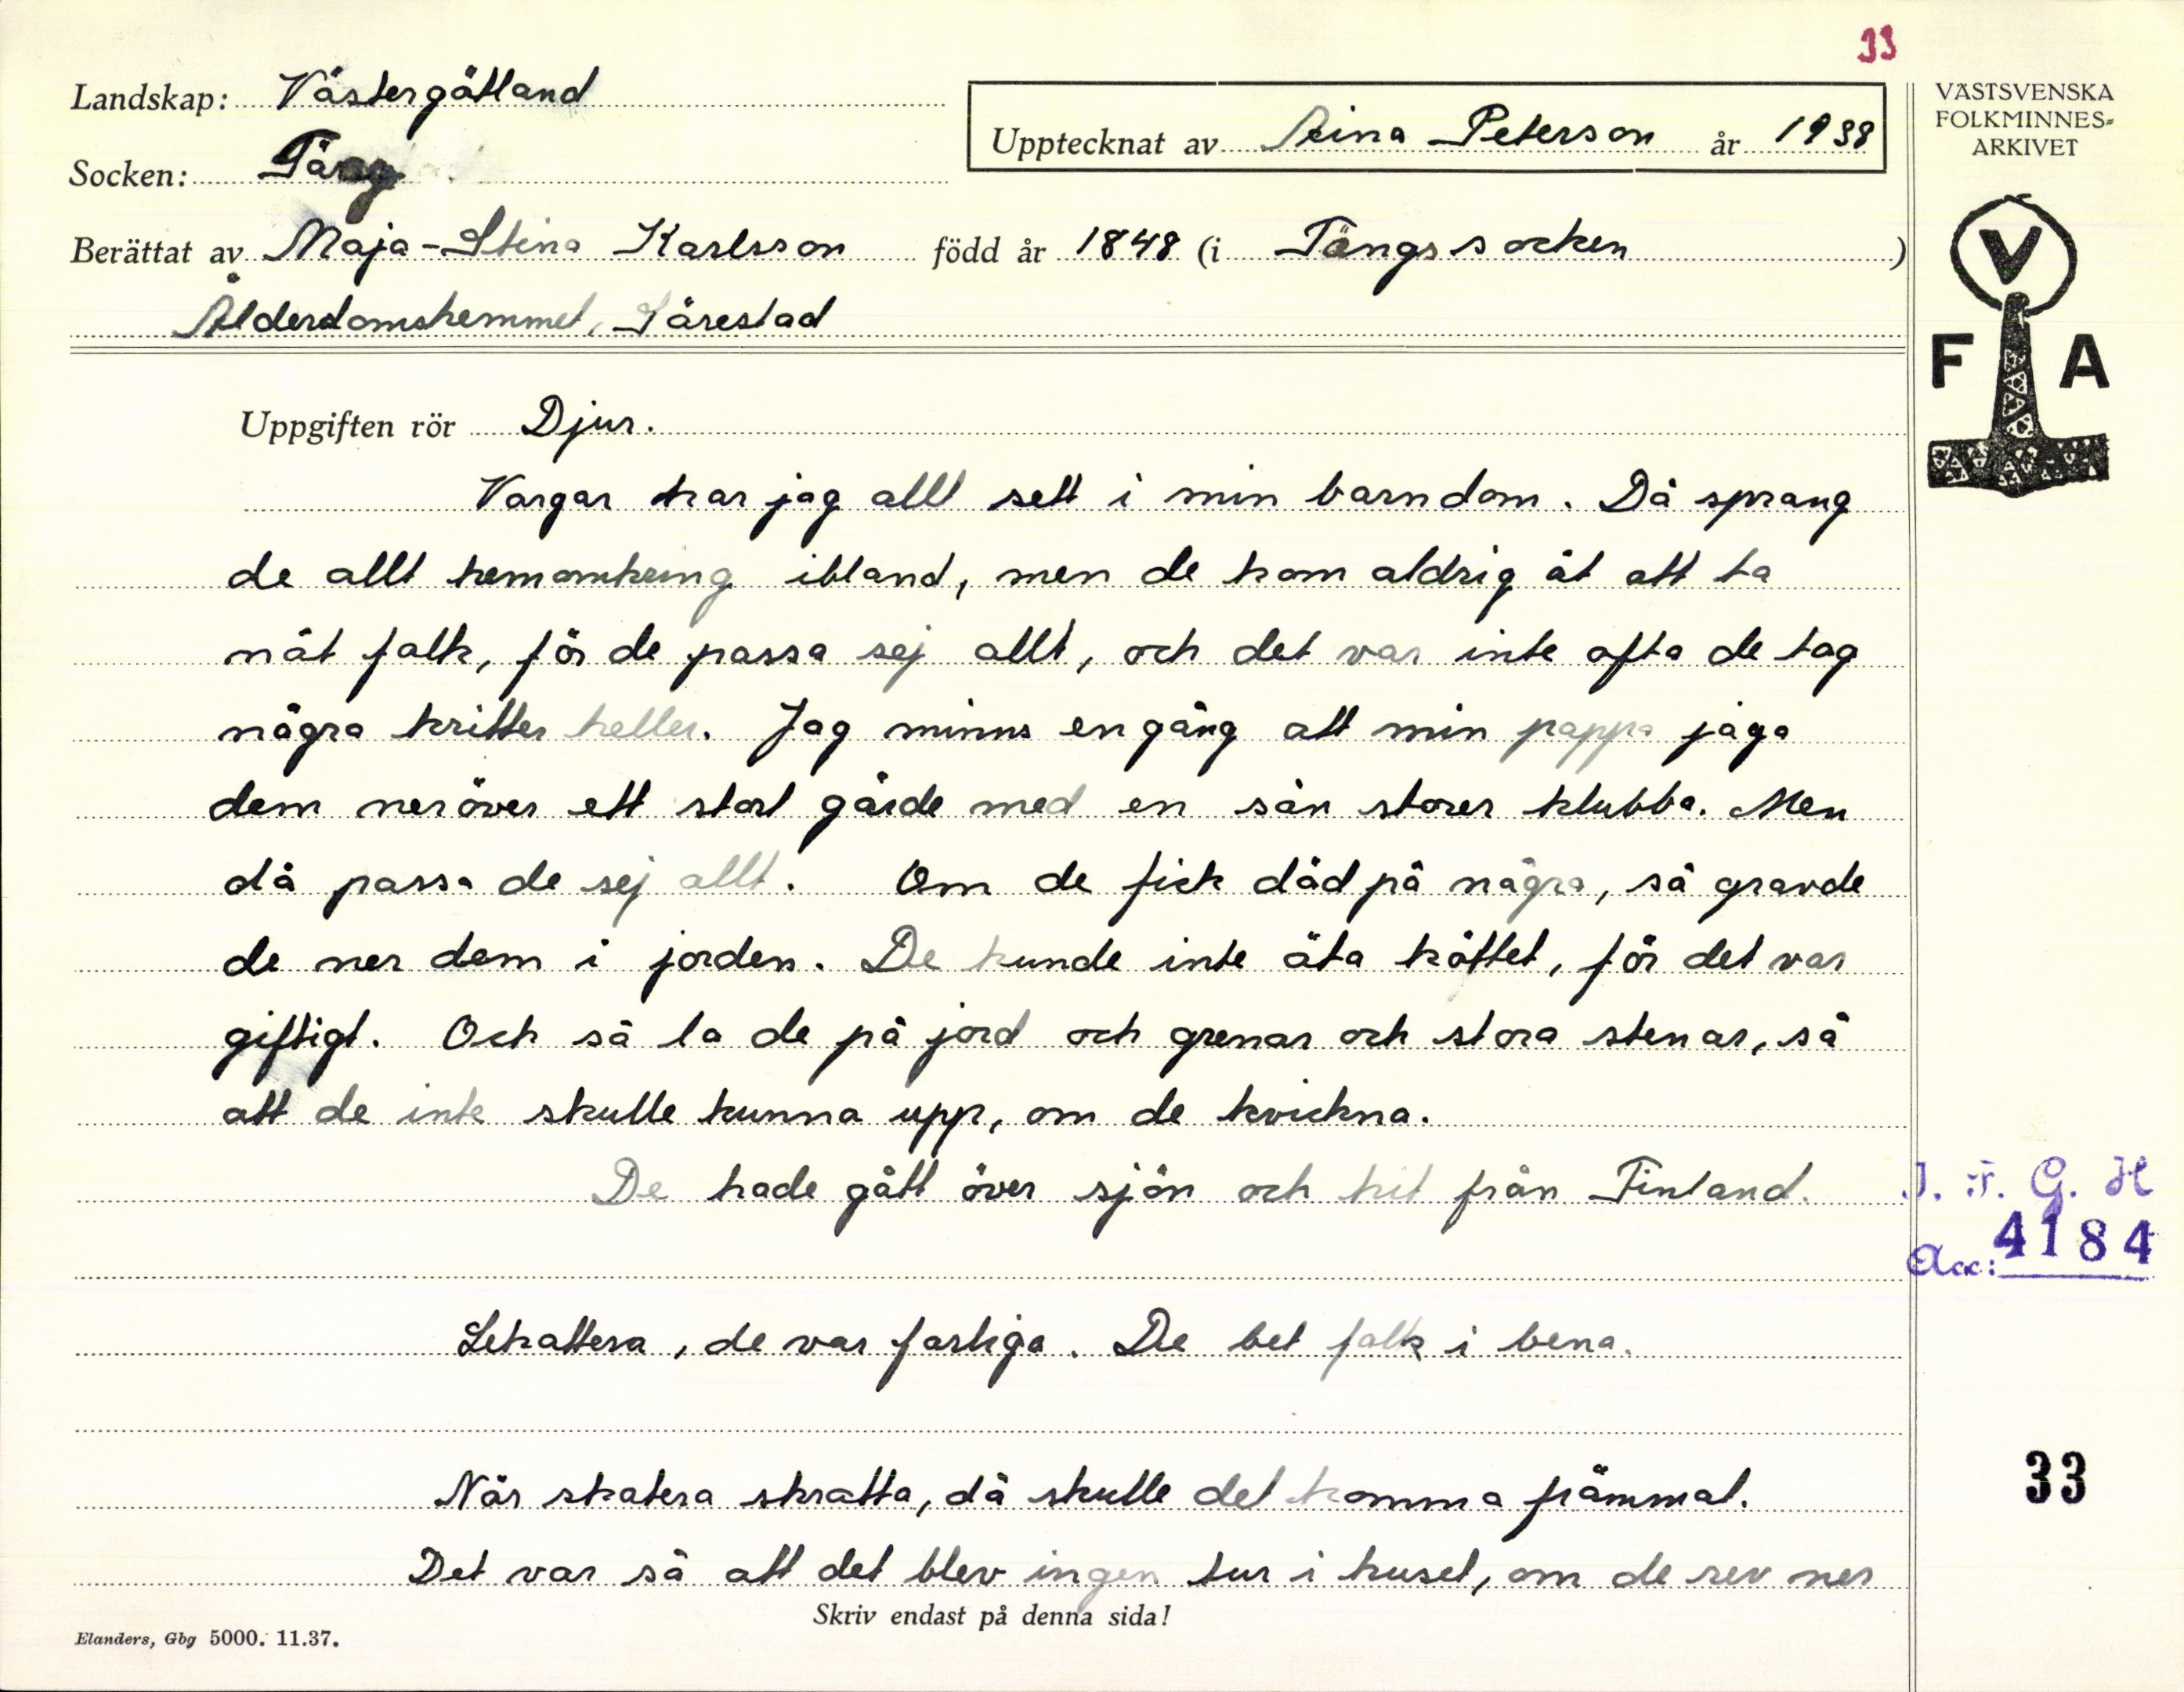 33
Landskap: Västergötland
Upptecknat av Aina Peterson år 1938
VÄSTSVENSKA
FOLKMINNES-
ARKIVET
Socken: Täng
Berättat av Maja-Stina Karlsson född år 1848 (i Tängs socken)
Ålderdomshemmet, Särestad
V
F A
Uppgiften rör Djur.
Vargar har jag allt sett i min barndom. Då sprang
de allt hemomkring ibland, men de kom aldrig åt att ta
nåt folk, för de passa sej allt, och det var inte ofta de tog
några kritter heller. Jag minns en gång att min pappa jaga
dem neröver ett stort gärde med en sån storer klubba. Men
då passa de sej allt. Om de fick död på några, så gravde
de ner dem i jorden. De kunde inte äta köttet, för det var
giftigt. Och så la de på jord och grenar och stora stenar, så
att de inte skulle kunna upp, om de kvickna.
De hade gått över sjön och hit från Finland.
I. F. G. H
Acc: 4184
Lekattera, de var farliga. De bet folk i bena.
När skatera skratta, då skulle det komma främmat.
33
Det var så att det blev ingen tur i huset, om de rev ner
Skriv endast på denna sida!
Elanders, Gbg 5000. 11.37.